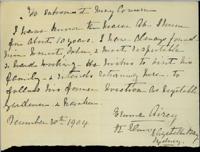 To whom it may Concern
I have known the bearer Ah Shew
for about 10 years. I have always found
him honest, sober & most respectable
& hard working. He wishes to visit his
family & intends returning here to
follow his former vocation as vegetable
gardener & hawker.
December 20th 1904
Emma Airey
Elizabeth Bay
Sydney